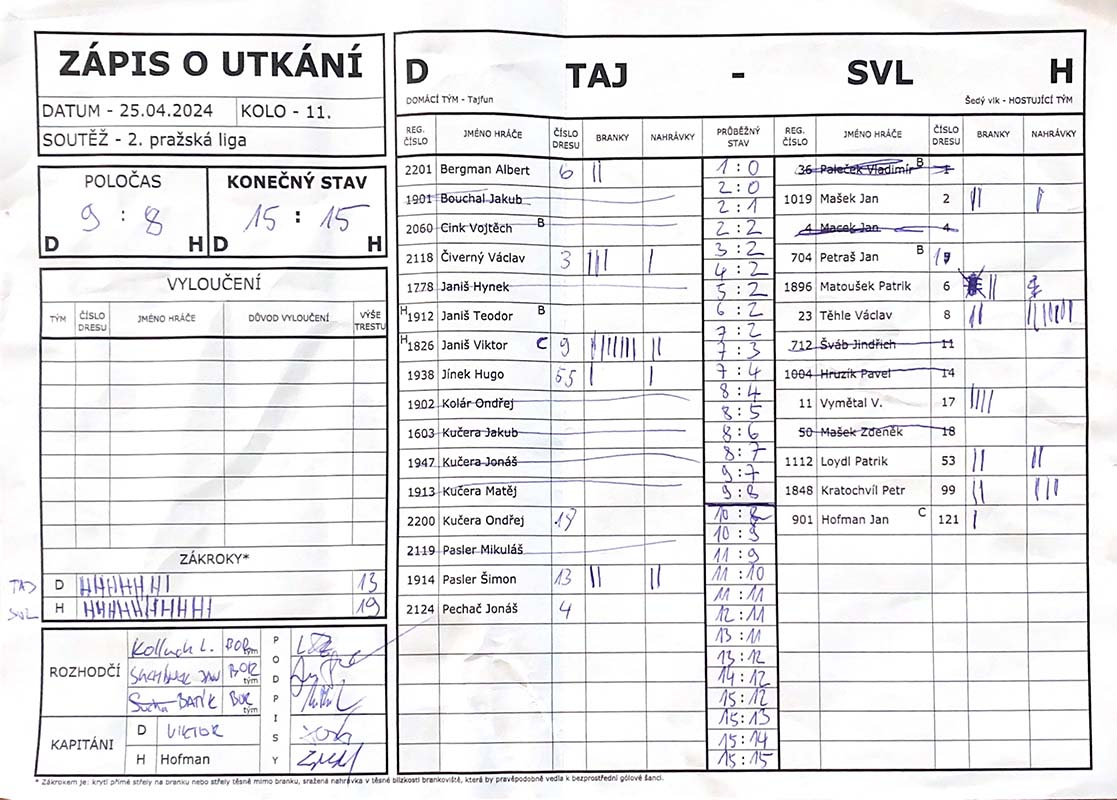 ZÁPIS O UTKÁNÍ
DATUM - 25.04.2024 KOLO - 11.
SOUTĚŽ - 2. pražská liga
POLOČAS KONEČNÝ STAV
9 : 8 15 : 15
D H D H
VYLOUČENÍ
TÝM ČÍSLO DRESU JMÉNO HRÁČE DŮVOD VYLOUČENÍ VÝŠE TRESTU
ZÁKROKY*
TAJ D 13
SVL H 19
ROZHODČÍ
Kolluch L. BOR tým
JAN BOR tým
BARÍK BOR tým
PODPISY
KAPITÁNI
D VIKTOR
H Hofman
D TAJ - SVL H
DOMÁCÍ TÝM - Tajfun Šedý vlk - HOSTUJÍCÍ TÝM
REG. ČÍSLO JMÉNO HRÁČE ČÍSLO DRESU BRANKY NAHRÁVKY PRŮBĚŽNÝ STAV REG. ČÍSLO JMÉNO HRÁČE ČÍSLO DRESU BRANKY NAHRÁVKY
2201 Bergman Albert 6 ||
1901 Bouchal Jakub
2060 Cink Vojtěch B
2118 Čiverný Václav 3 ||| |
1778 Janiš Hynek
H 1912 Janiš Teodor B
H 1826 Janiš Viktor C 9 ||
1938 Jínek Hugo 55 | |
1902 Kolár Ondřej
1603 Kučera Jakub
1947 Kučera Jonáš
1913 Kučera Matěj
2200 Kučera Ondřej 19
2119 Pasler Mikuláš
1914 Pasler Šimon 13 || ||
2124 Pechač Jonáš 4
1 : 0
2 : 0
2 : 1
2 : 2
3 : 2
4 : 2
5 : 2
6 : 2
7 : 2
7 : 3
7 : 4
8 : 4
8 : 5
8 : 6
8 : 7
9 : 7
9 : 8
10 : 8
10 : 9
11 : 9
11 : 10
11 : 11
12 : 11
13 : 11
13 : 12
14 : 12
15 : 12
15 : 13
15 : 14
15 : 15
36 Paleček Vladimír B 1
1019 Mašek Jan 2 || |
4 Macek Jan 4
704 Petraš Jan B
1896 Matoušek Patrik 6 ||
23 Těhle Václav 8 ||
712 Šváb Jindřich 11
1004 Hruzík Pavel 14
11 Vymětal V. 17 ||||
50 Mašek Zdeněk 18
1112 Loydl Patrik 53 || ||
1848 Kratochvíl Petr 99 || |||
901 Hofman Jan C 121 |
* Zákrokem je: krytí přímé střely na branku nebo střely těsně mimo branku, sražená nahrávka v těsné blízkosti brankoviště, která by pravěpodobně vedla k bezprostřední gólové šanci.